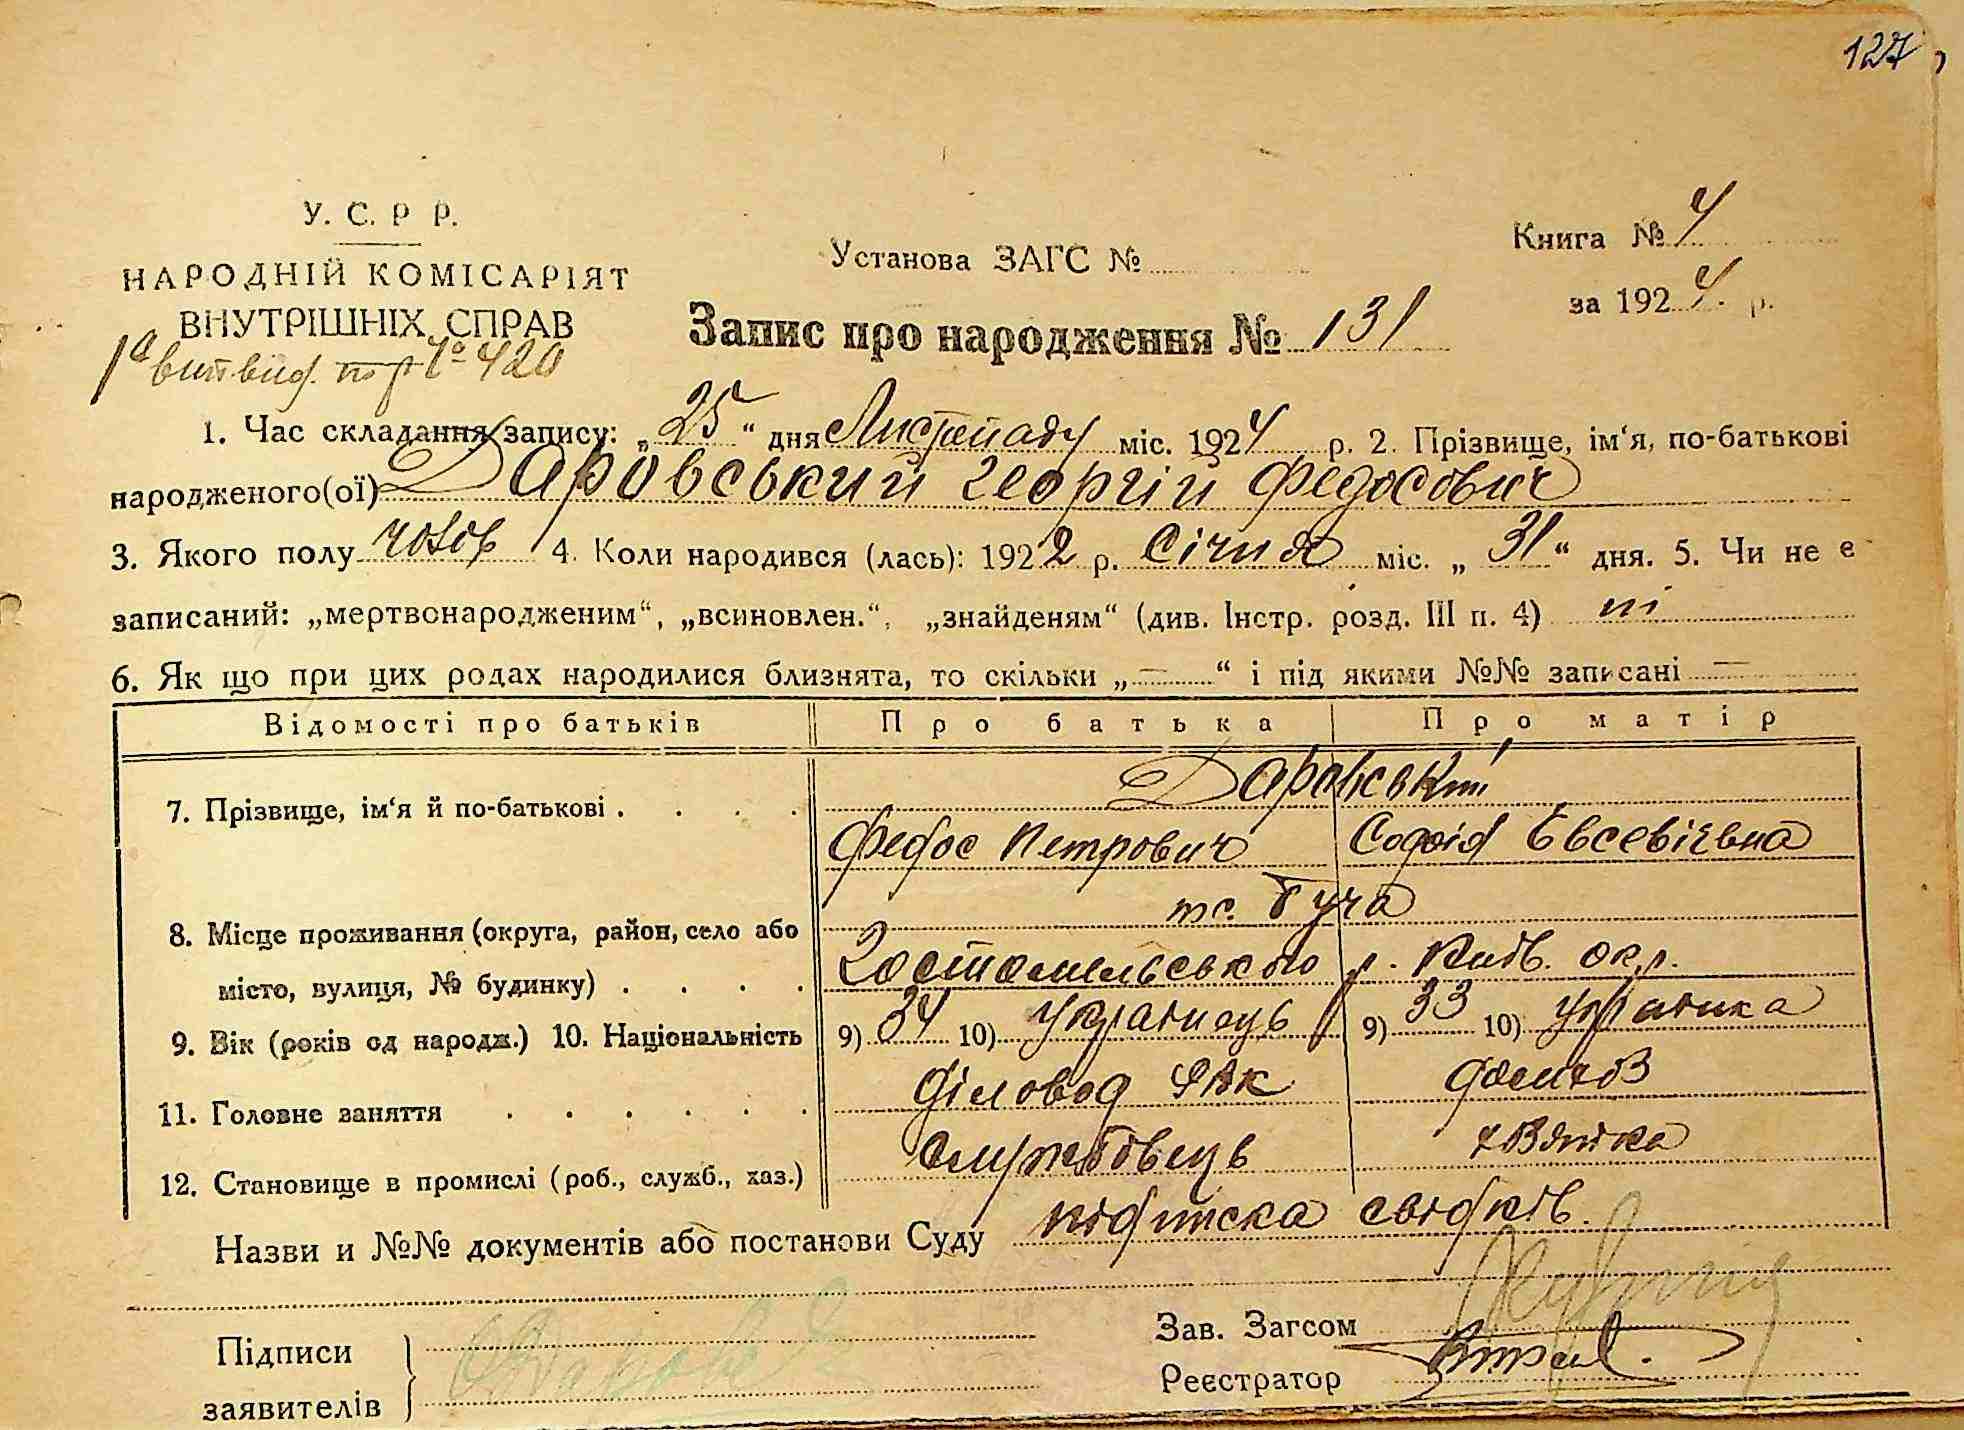 127
У. С. Р Р.
НАРОДНІЙ КОМІСАРІЯТ
ВНУТРІШНІХ СПРАВ
Установа ЗАГС №
Книга № 4
за 1924 р.
Запис про народження № 131
№ 420
1. Час складання запису: „25“ дня Листопаду міс. 1924 р. 2. Прізвище, ім‘я, по-батькові
народженого(ої) Даровський Георгій Федосович
3. Якого полу чолов 4. Коли народився (лась): 1922 р. Січня міс. „31“ дня. 5. Чи не є
записаний: „мертвонародженим“, „всиновлен.“, „знайденям“ (див. Інстр. розд. III п. 4) ні
6. Як що при цих родах народилися близнята, то скільки „—“ і під якими №№ записані —
Відомості про батьків Про батька Про матір
7. Прізвище, ім‘я й по-батькові . . . . Даровські
Федос Петрович Софія Евсевієвна
8. Місце проживання (округа, район, село або Буча
місто, вулиця, № будинку) . . . . Гостомельського р. Київ. окр.
9. Вік (років од народж.) 10. Національність 9) 34 10) Українець 9) 33 10) Українка
11. Головне заняття . . . . . . Діловод домгов
12. Становище в промислі (роб., служб., хаз.) Службовець
Назви и №№ документів або постанови Суду підписка свідків.
Підписи
заявителів
Зав. Загсом
Реєстратор